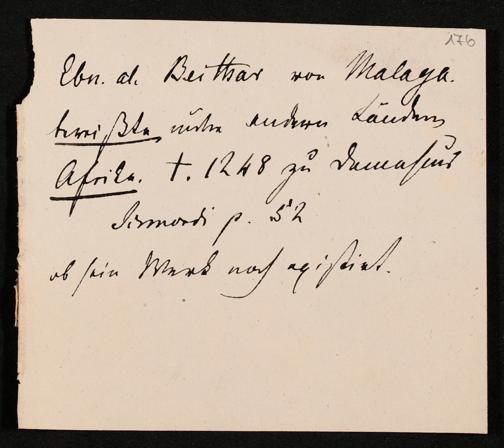 176
Ebn. al. Beithar von Malaga.
bereißte unter andern Ländern
Afrika. †. 1248 zu Damascus
p. 52
ob sein Werk noch existirt.